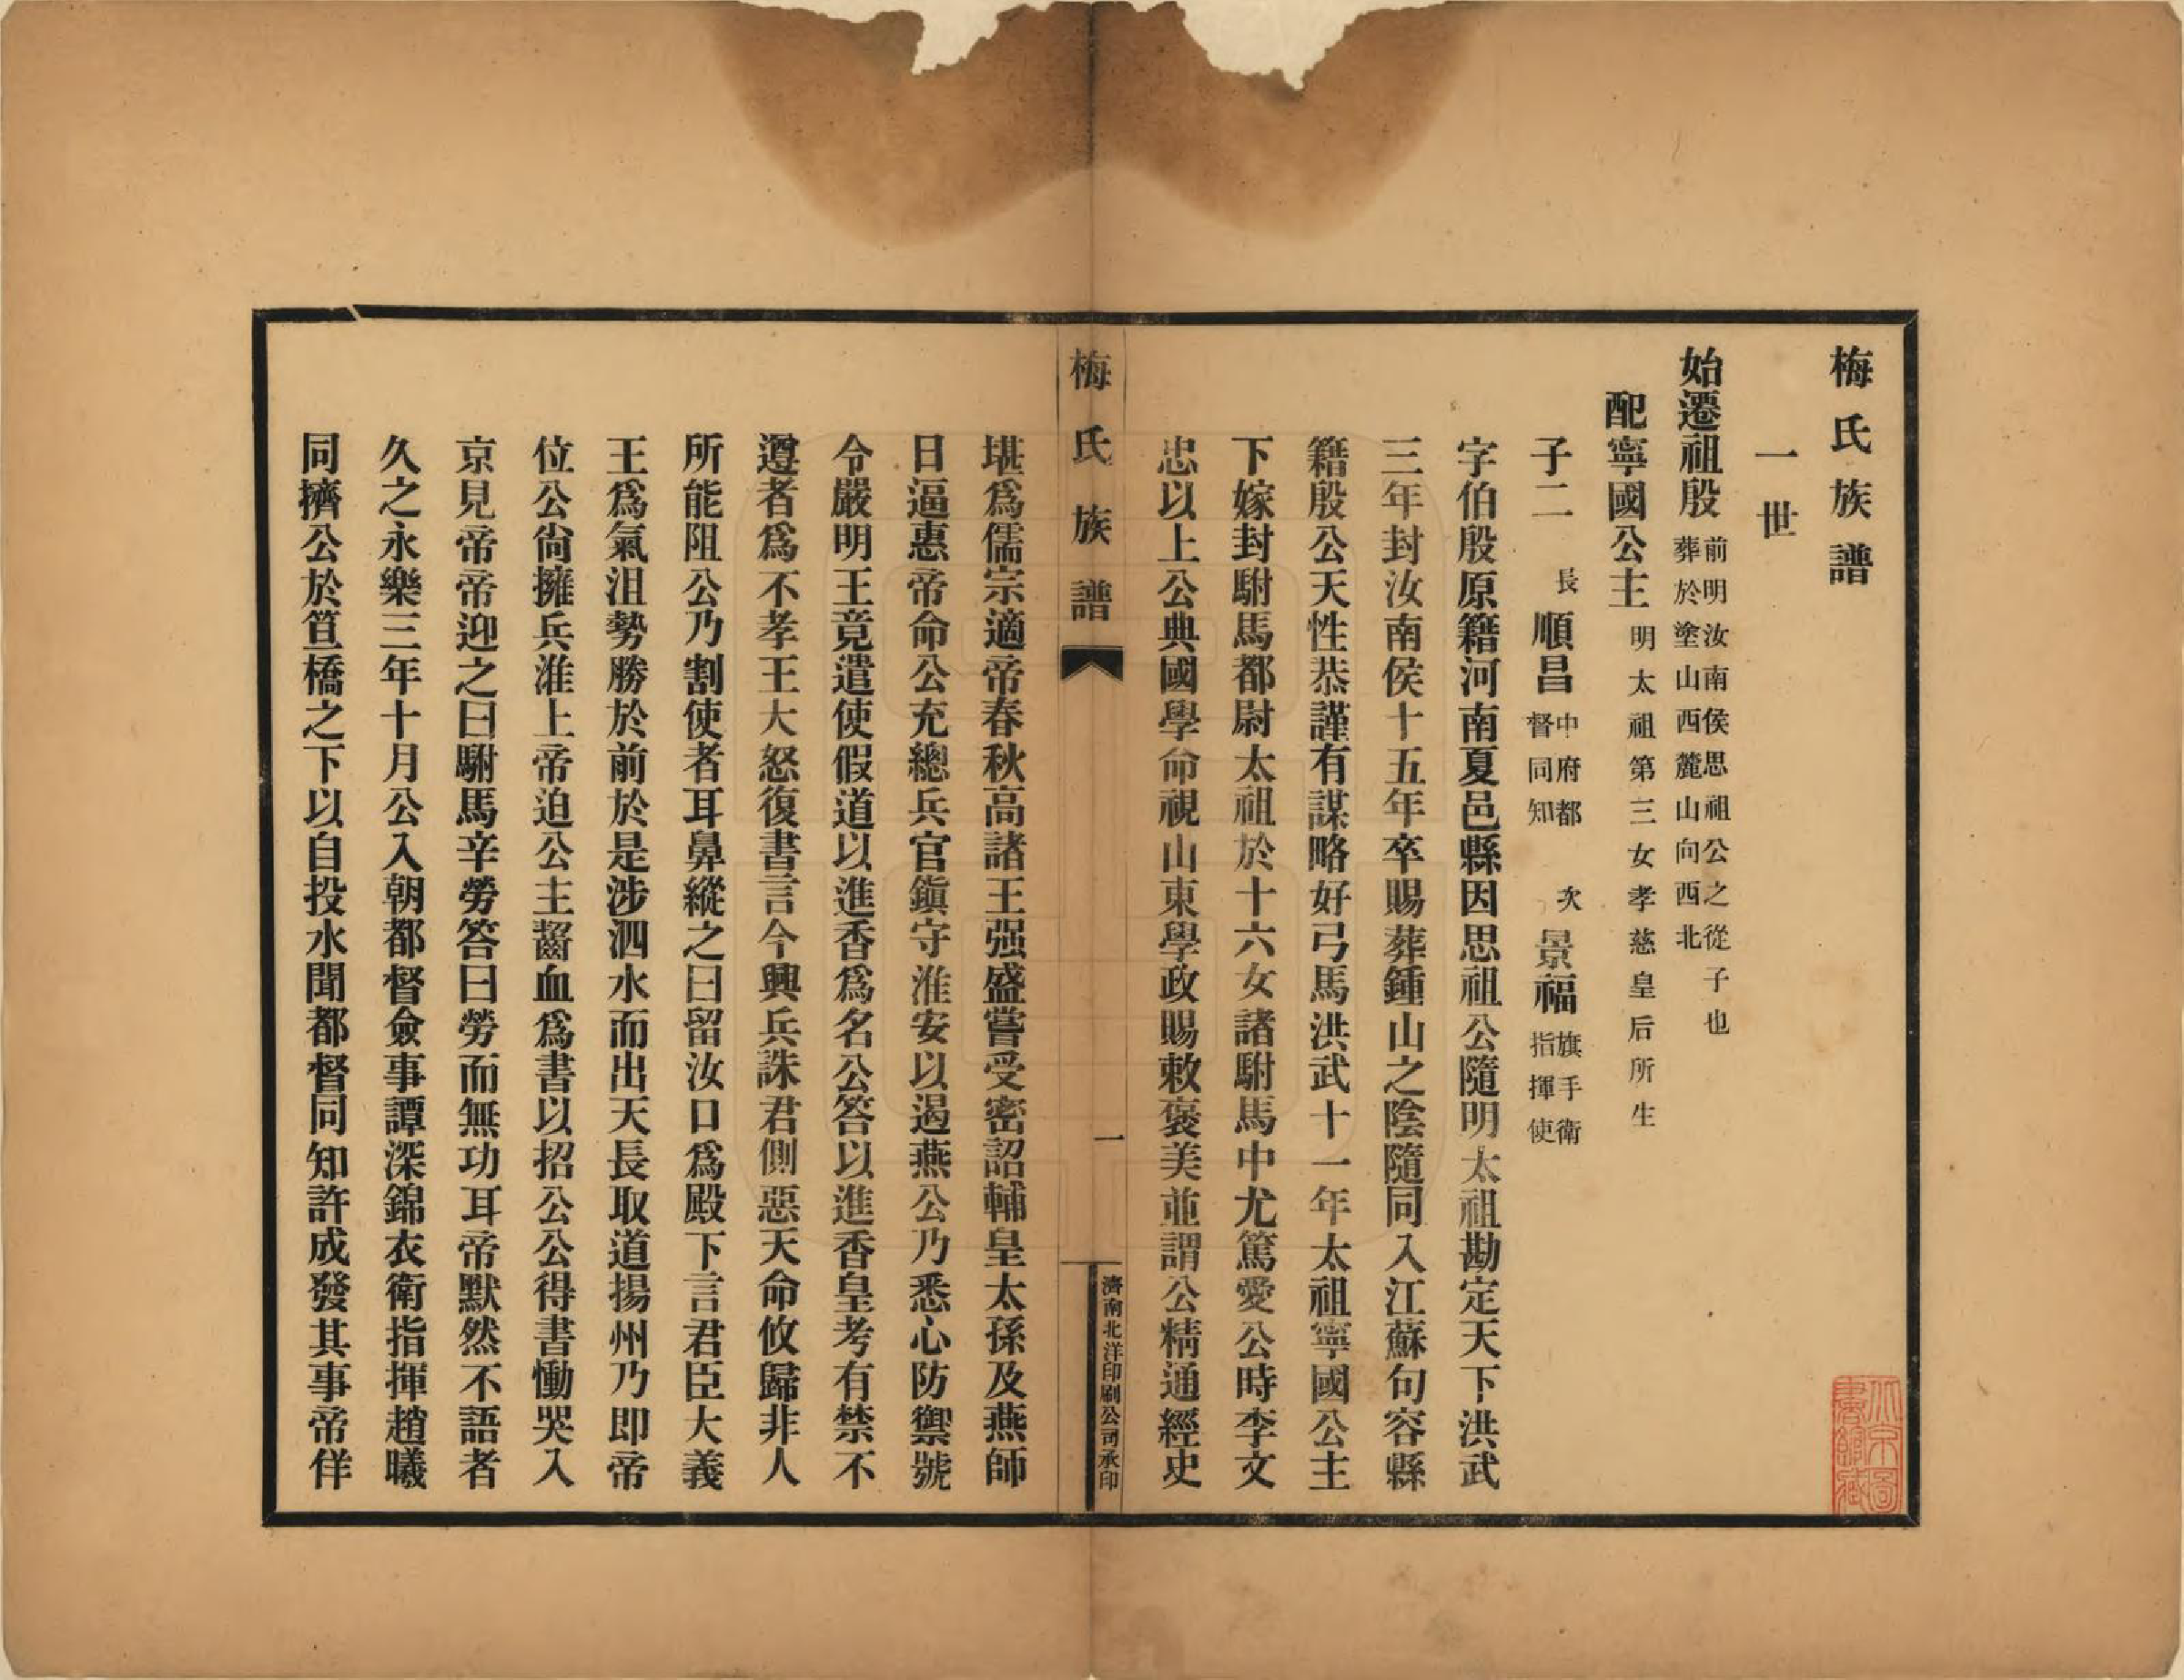 梅氏族譜
一世
始遷祖殷 前明汝南侯思祖公之從子也
葬於塗山西麓山向西北
配寧國公主 明太祖第三女孝慈皇后所生
子二 長順昌 中府都
督同知 次景福 旗手衛
指揮使
字伯殷原籍河南夏邑縣因思祖公隨明太祖勘定天下洪武
三年封汝南侯十五年卒賜葬鍾山之陰隨同入江蘇句容縣
籍殷公天性恭謹有謀略好弓馬洪武十一年太祖寧國公主
下嫁封駙馬都尉太祖於十六女諸駙馬中尤篤愛公時李文
忠以上公典國學命視山東學政賜敕褒美並謂公精通經史
梅氏族譜
一
濟南北洋印刷公司承印
堪爲儒宗適帝春秋高諸王强盛嘗受密詔輔皇太孫及燕師
日逼惠帝命公充總兵官鎭守淮安以遏燕公乃悉心防禦號
令嚴明王竟遣使假道以進香爲名公答以進香皇考有禁不
遵者爲不孝王大怒復書言今興兵誅君側惡天命攸歸非人
所能阻公乃割使者耳鼻縱之曰留汝口爲殿下言君臣大義
王爲氣沮勢勝於前於是涉泗水而出天長取道揚州乃即帝
位公尙擁兵淮上帝迫公主齧血爲書以招公公得書慟哭入
京見帝帝迎之曰駙馬辛勞答曰勞而無功耳帝默然不語者
久之永樂三年十月公入朝都督僉事譚深錦衣衛指揮趙曦
同擠公於笪橋之下以自投水聞都督同知許成發其事帝佯